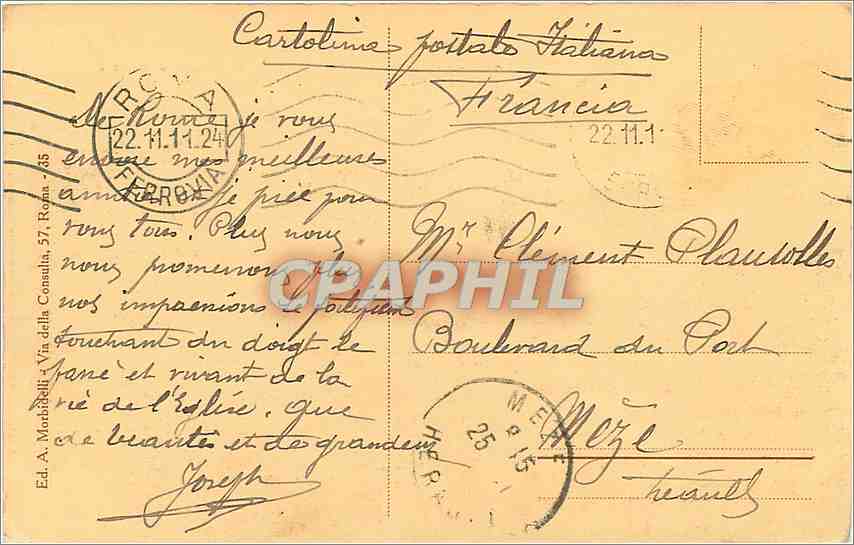 Cartolina postale Italiana
Francia
ROMA
22.11.11.24
FERROVIA
22.11.1
De Rome je vous
envoie mes meilleures
amitiés je prie pour
vous tous. Plus nous
nous promenons, plus
nos impressions se fortifient
touchant du doigt le
passé et vivant de la
vie de l'Eglise. Que
de beautés et de grandeurs
Joseph
Mr Clément Plausolles
Boulevard du Port
Mèze
Hérault
MEZE
8 15
25
HERAU
Ed. A. Morbidelli - Via della Consulta, 57, Roma - 35
CPAPHIL